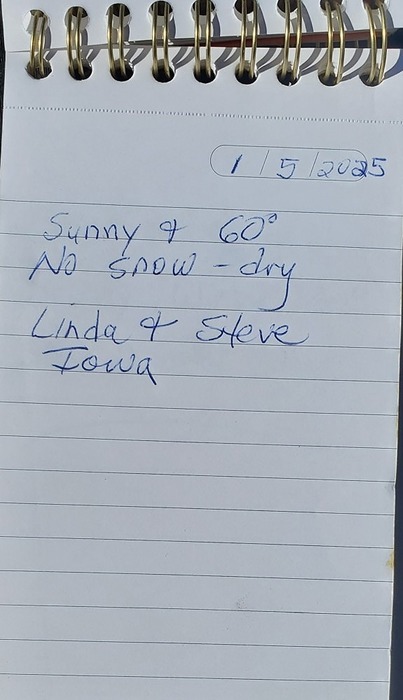 1/5/2025
Sunny & 60°
No snow - dry
Linda & Steve
Iowa